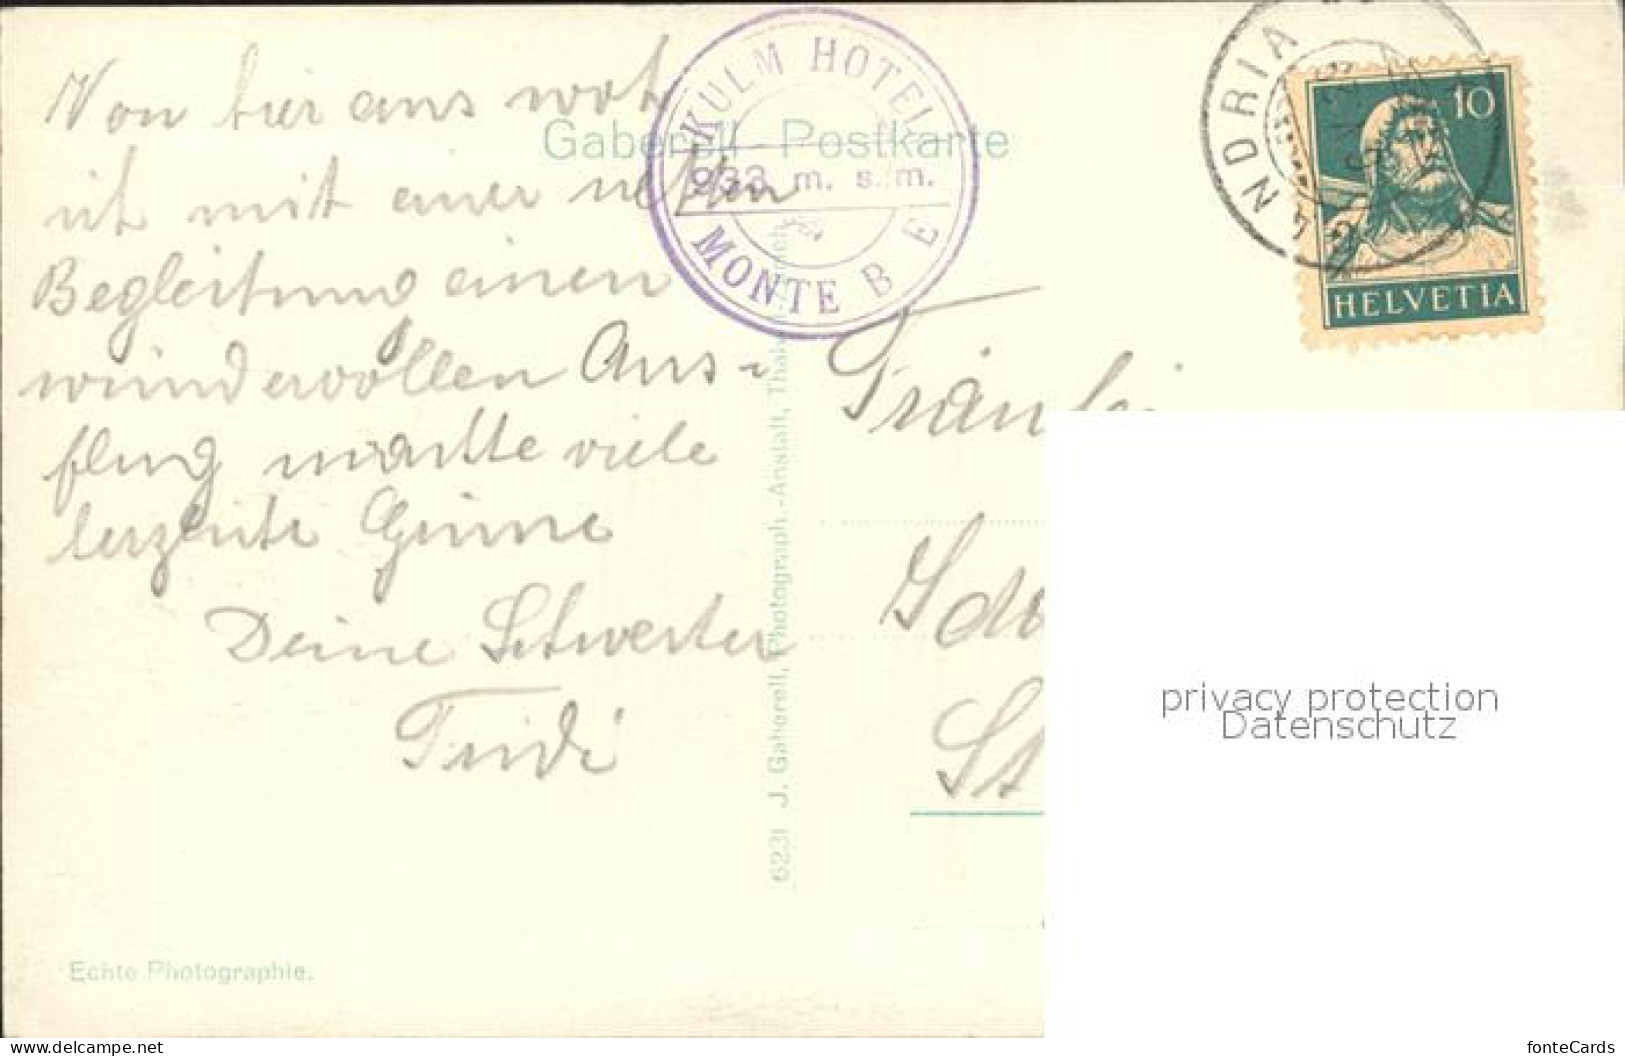 KULM HOTEL
933 m. s. m.
MONTE B E
GANDRIA
10
HELVETIA
Gaberell Postkarte
Von hier aus wo
ich mit einer netten
Begleitung einen
wundervollen Aus-
flug machte viele
herzliche Grüsse
Deine Schwester
Trudi
Fräulei
St
6231 J. Gaberell, Photograph.-Anstalt, Thal
Echte Photographie.
privacy protection
Datenschutz
www.delcampe.net
fonteCards